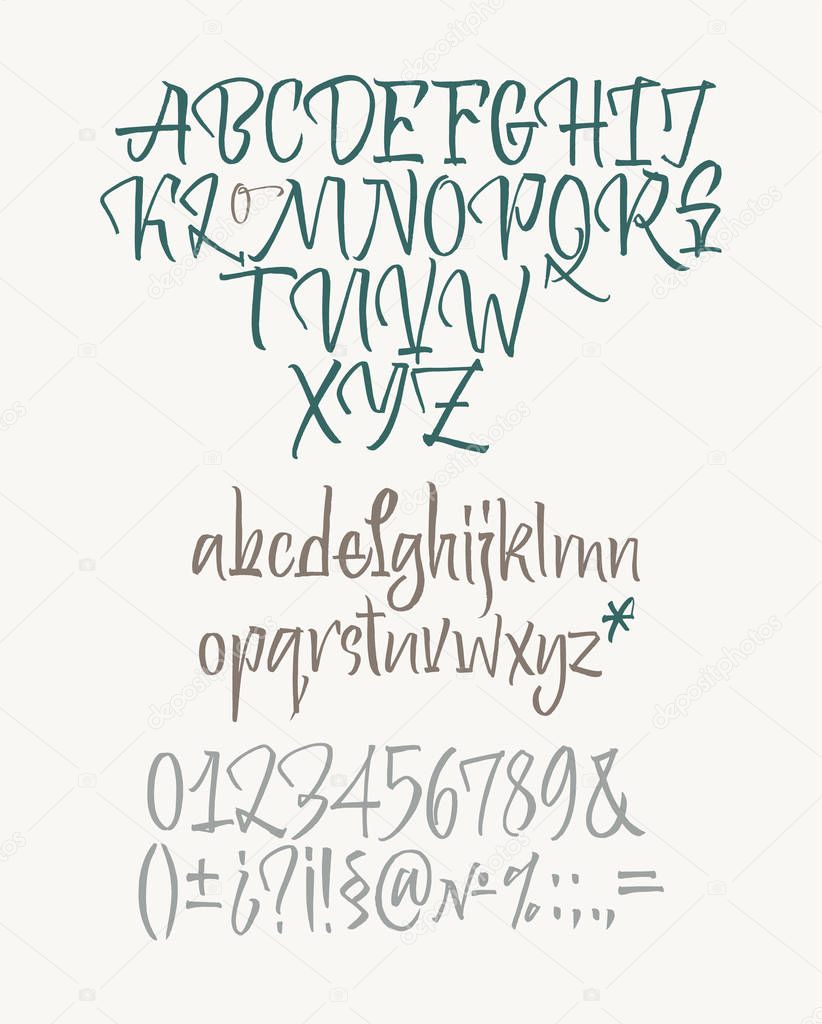 ABCDEFGHIJ
KLoMNOPQRS
TUVW
XYZ
abcdefghijklmn
opqrstuvwxyz*
0123456789&
()±¿?¡!§@№%:;.,=